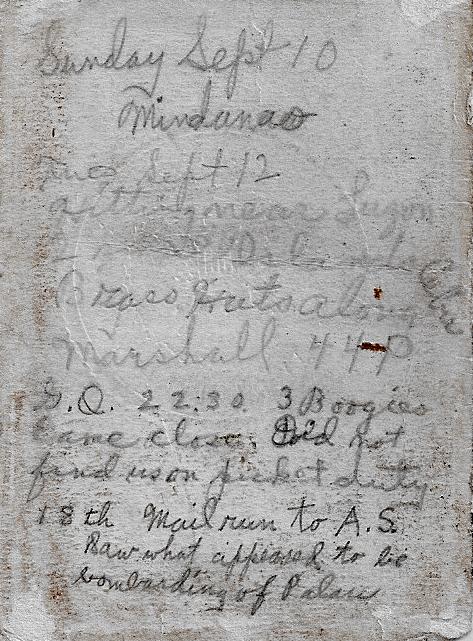 Sunday Sept 10
Mindanao
Tues Sept 12
near Luzon
Brass Hats along
Marshall 44
G.Q. 22:30. 3 Boogies
Came close. Did not
find us on picket duty
18th Mail run to A.S.
Saw what appeared to be
bombarding of Palau